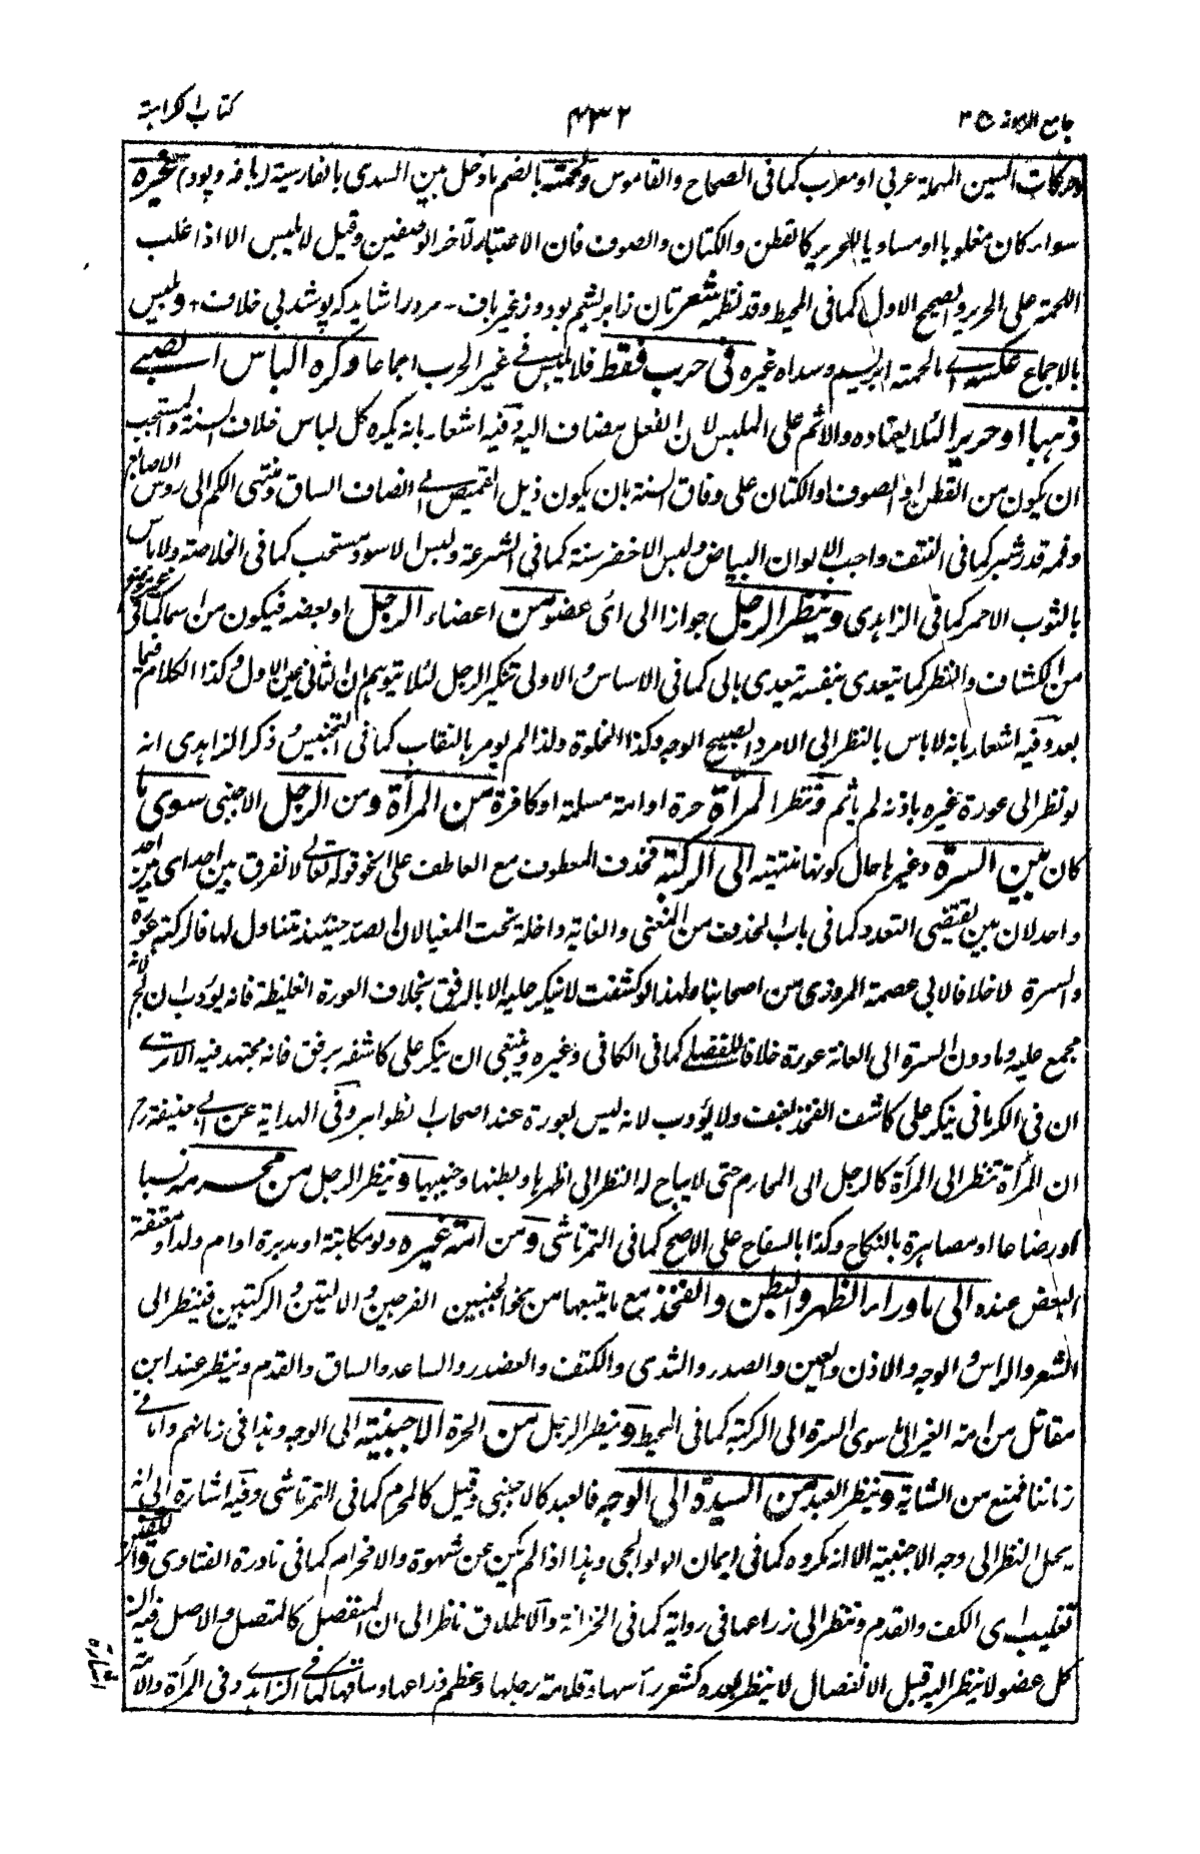 جامع الرموز ٣ ٥٣٢ كتاب الكراهية
وحركات السين المهملة عربي او معرب كما فى الصحاح والقاموس ولحمته بالضم ما دخل بين السدى بالفارسية (بافه وپود) غيره
سواء كان مغلوبا او مساويا للحرير كالقطن والكتان والصوف فان الاعتبار لآخر الوصفين وقيل لا يلبس الا اذا غلب
اللحمة على الحرير والصحيح الاول كما فى المحيط وقد نظم شعر تان زابريشم بود وز غير باف ـ مرد را شايد كه پوشد بى خلاف + ويلبس
بالاجماع عكسه اى ما لحمته ابريسم وسداه غيره فى حرب فقط فلا يلبس فى غير الحرب اجماعا وكره الباس الصبى
ذهبا او حريرا لئلا يعتاده والاثم على الملبس لان الفعل مضاف اليه وفيه اشعار بانه يكره كل لباس خلاف السنة والمستحب
ان يكون من القطن او الصوف او الكتان على وفاق السنة بان يكون ذيل القميص الى انصاف الساق ومنتهى الكم الى روس الاصابع
وفمه قدر شبر كما فى النتف واحب الالوان البياض ولبس الاخضر سنة كما فى الشرعة ولبس الاسود مستحب كما فى الخلاصة ولا باس
بالثوب الاحمر كما فى الزاهدى وينظر الرجل جوازا الى اى عضو من اعضاء الرجل او بعضه فيكون من اسما كما فى
من الكشاف والنظر كما يتعدى بنفسه يتعدى بالى كما فى الاساس والاولى تنكير الرجل لئلا يتوهم ان الثانى عين الاول وكذا الكلام فيما
بعد وفيه اشعار بانه لا باس بالنظر الى الامرد الصبيح الوجه وكذا الخلوة ولذا لم يومر بالنقاب كما فى التجنيس وذكر الزاهدى انه
لو نظر الى عورة غيره باذنه لم ياثم وتنظر المرأة حرة او امة مسلمة او كافرة من المرأة ومن الرجل الاجنبى سوى ما
كان بين السرة وغيرها حال كونها منتهية الى الركبة فحذف المعطوف مع العاطف على نحو قوله تعالى لا نفرق بين احد اى بين احد
واحد لان بين يقتضى التعدد كما فى باب الحذف من المغنى والغاية داخلة تحت المغيا لان الصدر حينئذ متناول لها فالركبة عورة
والسرة لا خلافا لابى عصمة المروزى من اصحابنا ولهذا لو كشفت لا ينكر عليه الا بالرفق بخلاف العورة الغليظة فانه يؤدب ان لج لانه
مجمع عليه وما دون السرة الى العانة عورة خلافا للفضلى كما فى الكافى وغيره وينبغى ان ينكر على كاشفه برفق فانه مجتهد فيه الا ترى
ان فى الكرمانى ينكر على كاشف الفخذ بعنف ولا يؤدب لانه ليس بعورة عند اصحاب الظواهر وفى الهداية عن ابى حنيفة رح
ان المرأة تنظر الى المرأة كالرجل الى المحارم حتى لا يباح له النظر الى ظهرها وبطنها وجنبيها وينظر الرجل من محرمه نسبا
او رضاعا او مصاهرة بالنكاح وكذا بالسفاح على الاصح كما فى التمرتاشى ومن امة غيره ولو مكاتبة او مدبرة او ام ولد او معتقة
البعض عنده الى ما وراء الظهر والبطن والفخذ مع ما يتبعها من نحو الجنبين الفرجين والاليتين والركبتين فينظر الى
الشعر والراس والوجه والاذن والعين والصدر والثدى والكتف والعضد والساعد والساق والقدم وينظر عند ابن
مقاتل من امة الغير الى ما سوى السرة الى الركبة كما فى المحيط وينظر الرجل من الحرة الاجنبية الى الوجه وهذا فى زمانهم واما فى
زماننا فمنع من الشابة وينظر العبد من السيدة الى الوجه فالعبد كالاجنبى وقيل كالمحرم كما فى التمرتاشى وفيه اشارة الى انه
يحل النظر الى وجه الاجنبية الا انه مكروه كما فى ايمان الولوالجى وهذا اذا لم يكن عن شهوة والا فحرام كما فى نادرة الفتاوى
تغليب اى الكف والقدم وتنظر الى ذراعها فى رواية كما فى الخزانة والاطلاق ناظر الى ان المنفصل كالمتصل والاصل فيه ان
كل عضو لا ينظر اليه قبل الانفصال لا ينظر بعده كشعر رأسها وقلامة رجلها وعظم ذراعها وساقها كما فى الزاهدى وفى المرأة والامة
اشارة